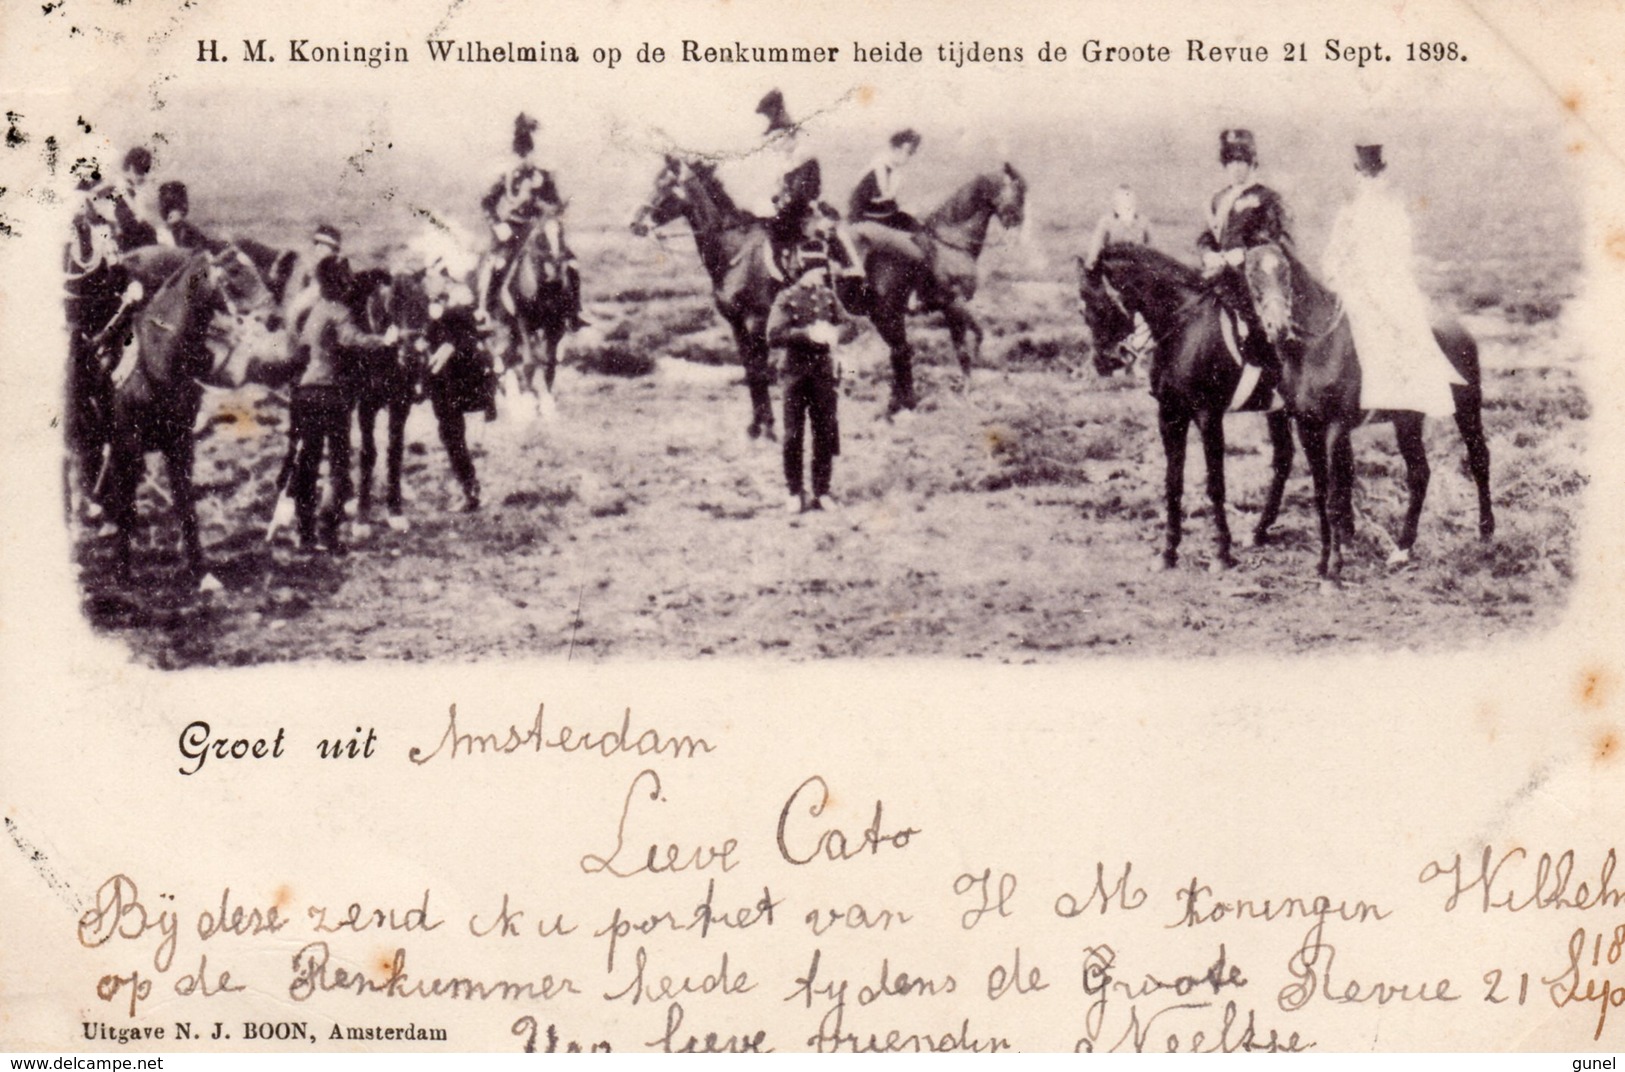 H. M. Koningin Wilhelmina op de Renkummer heide tijdens de Groote Revue 21 Sept. 1898.
Groet uit Amsterdam
Lieve Cato
Bij deze zend ik u portret van H M Koningin Wilhelm
op de Renkummer heide tydens de Groote Revue 21 Sep 18
Uitgave N. J. BOON, Amsterdam
Uw lieve vriendin Neeltje
www.delcampe.net
gunel